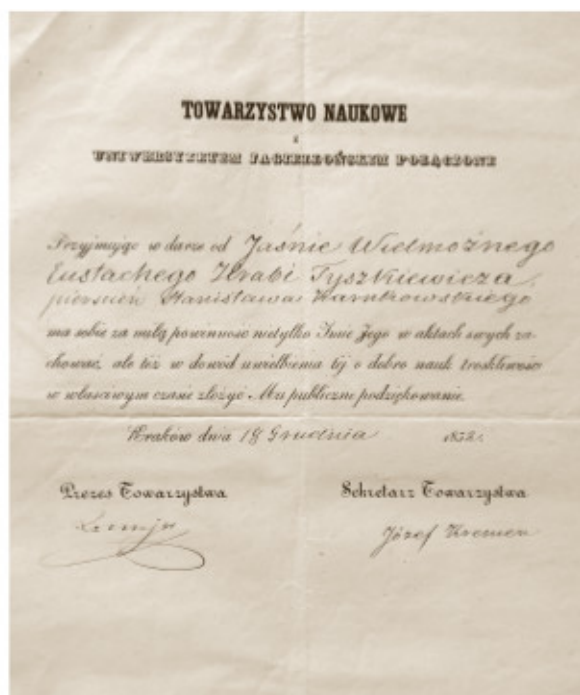 TOWARZYSTWO NAUKOWE
z
UNIWERSYTETEM JAGIELLOŃSKIM POŁĄCZONE
Przyjmując w darze od Jaśnie Wielmożnego
Eustachego Hrabi Tyszkiewicza,
pierścień Stanisława Karnkowskiego
ma sobie za miłą powinność nietylko Imie Jego w aktach swych za-
chować, ale też w dowód uwielbienia téj o dobro nauk troskliwości
w właściwym czasie złożyć Mu publiczne podziękowanie.
Kraków dnia 18 Grudnia 1852.
Prezes Towarzystwa
Sekretarz Towarzystwa
Józef Kremer